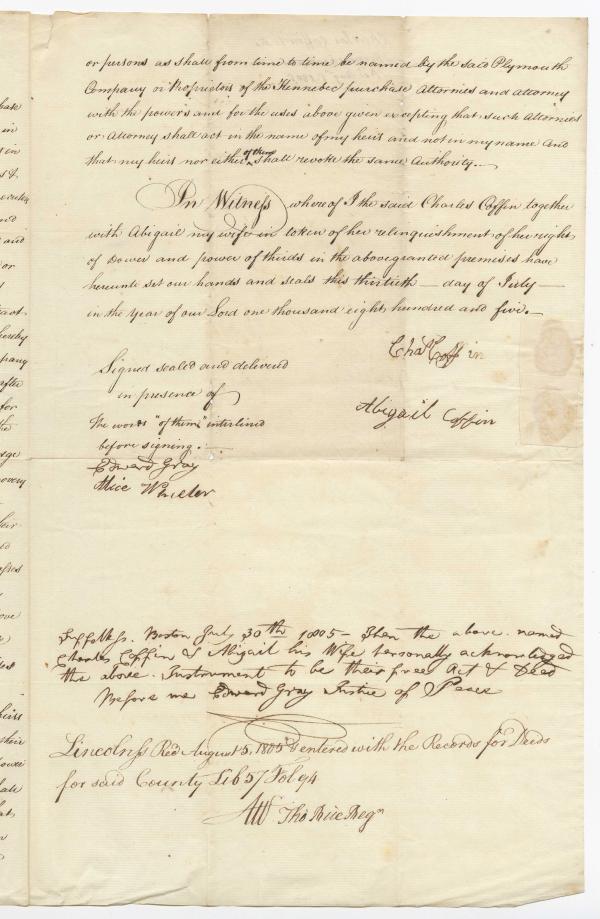 or persons as shall from time to time be named by the said Plymouth
Company or Proprietors of the Kennebec purchase Attornies and attorney
with the powers and for the uses above given excepting that such Attornies
or Attorney shall act in the name of my heirs and not in my name And
that my heirs nor either of them shall revoke the same Authority.
In Witness whereof I the said Charles Coffin together
with Abigail my wife in token of her relinquishment of her right
of Dower and power of thirds in the abovegranted premises have
hereunto set our hands and seals this thirtieth — day of July —
in the year of our Lord one thousand eight hundred and five. —
Signed sealed and delivered
in presence of
The words "of them" interlined
before signing. —
Edward Gray
Alice Wheeler
Chas Coffin
Abigail Coffin
Suffolk ss. Boston July 30th 1805 — Then the above named
Charles Coffin & Abigail his Wife personally acknowledged
the above Instrument to be their free Act & Deed
Before me Edward Gray Justice of Peace
Lincoln ss Recd August 5, 1805 & entered with the Records for Deeds
for said County Lib 57 Fol 94
Att Tho Rice Regr